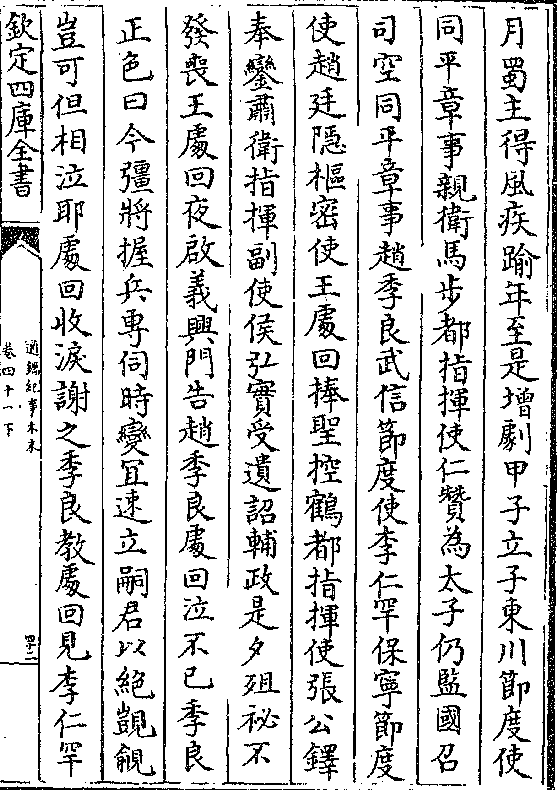 月蜀主得風疾踰年至是增劇甲子立子東川節度使
同平章事親衛馬步都指揮使仁贊為太子仍監國召
司空同平章事趙季良武信節度使李仁罕保寧節度
使趙廷隱樞密使王處回捧聖控鶴都指揮使張公鐸
奉鑾肅衛指揮副使侯弘實受遺詔輔政是夕殂祕不
發喪王處回夜啟義興門告趙季良處回泣不已季良
正色曰今彊將握兵專伺時變宜速立嗣君以絕覬覦
豈可但相泣耶處回收淚謝之季良教處回見李仁罕
欽定四庫全書
通鑑紀事本末
卷四十一下
四十二